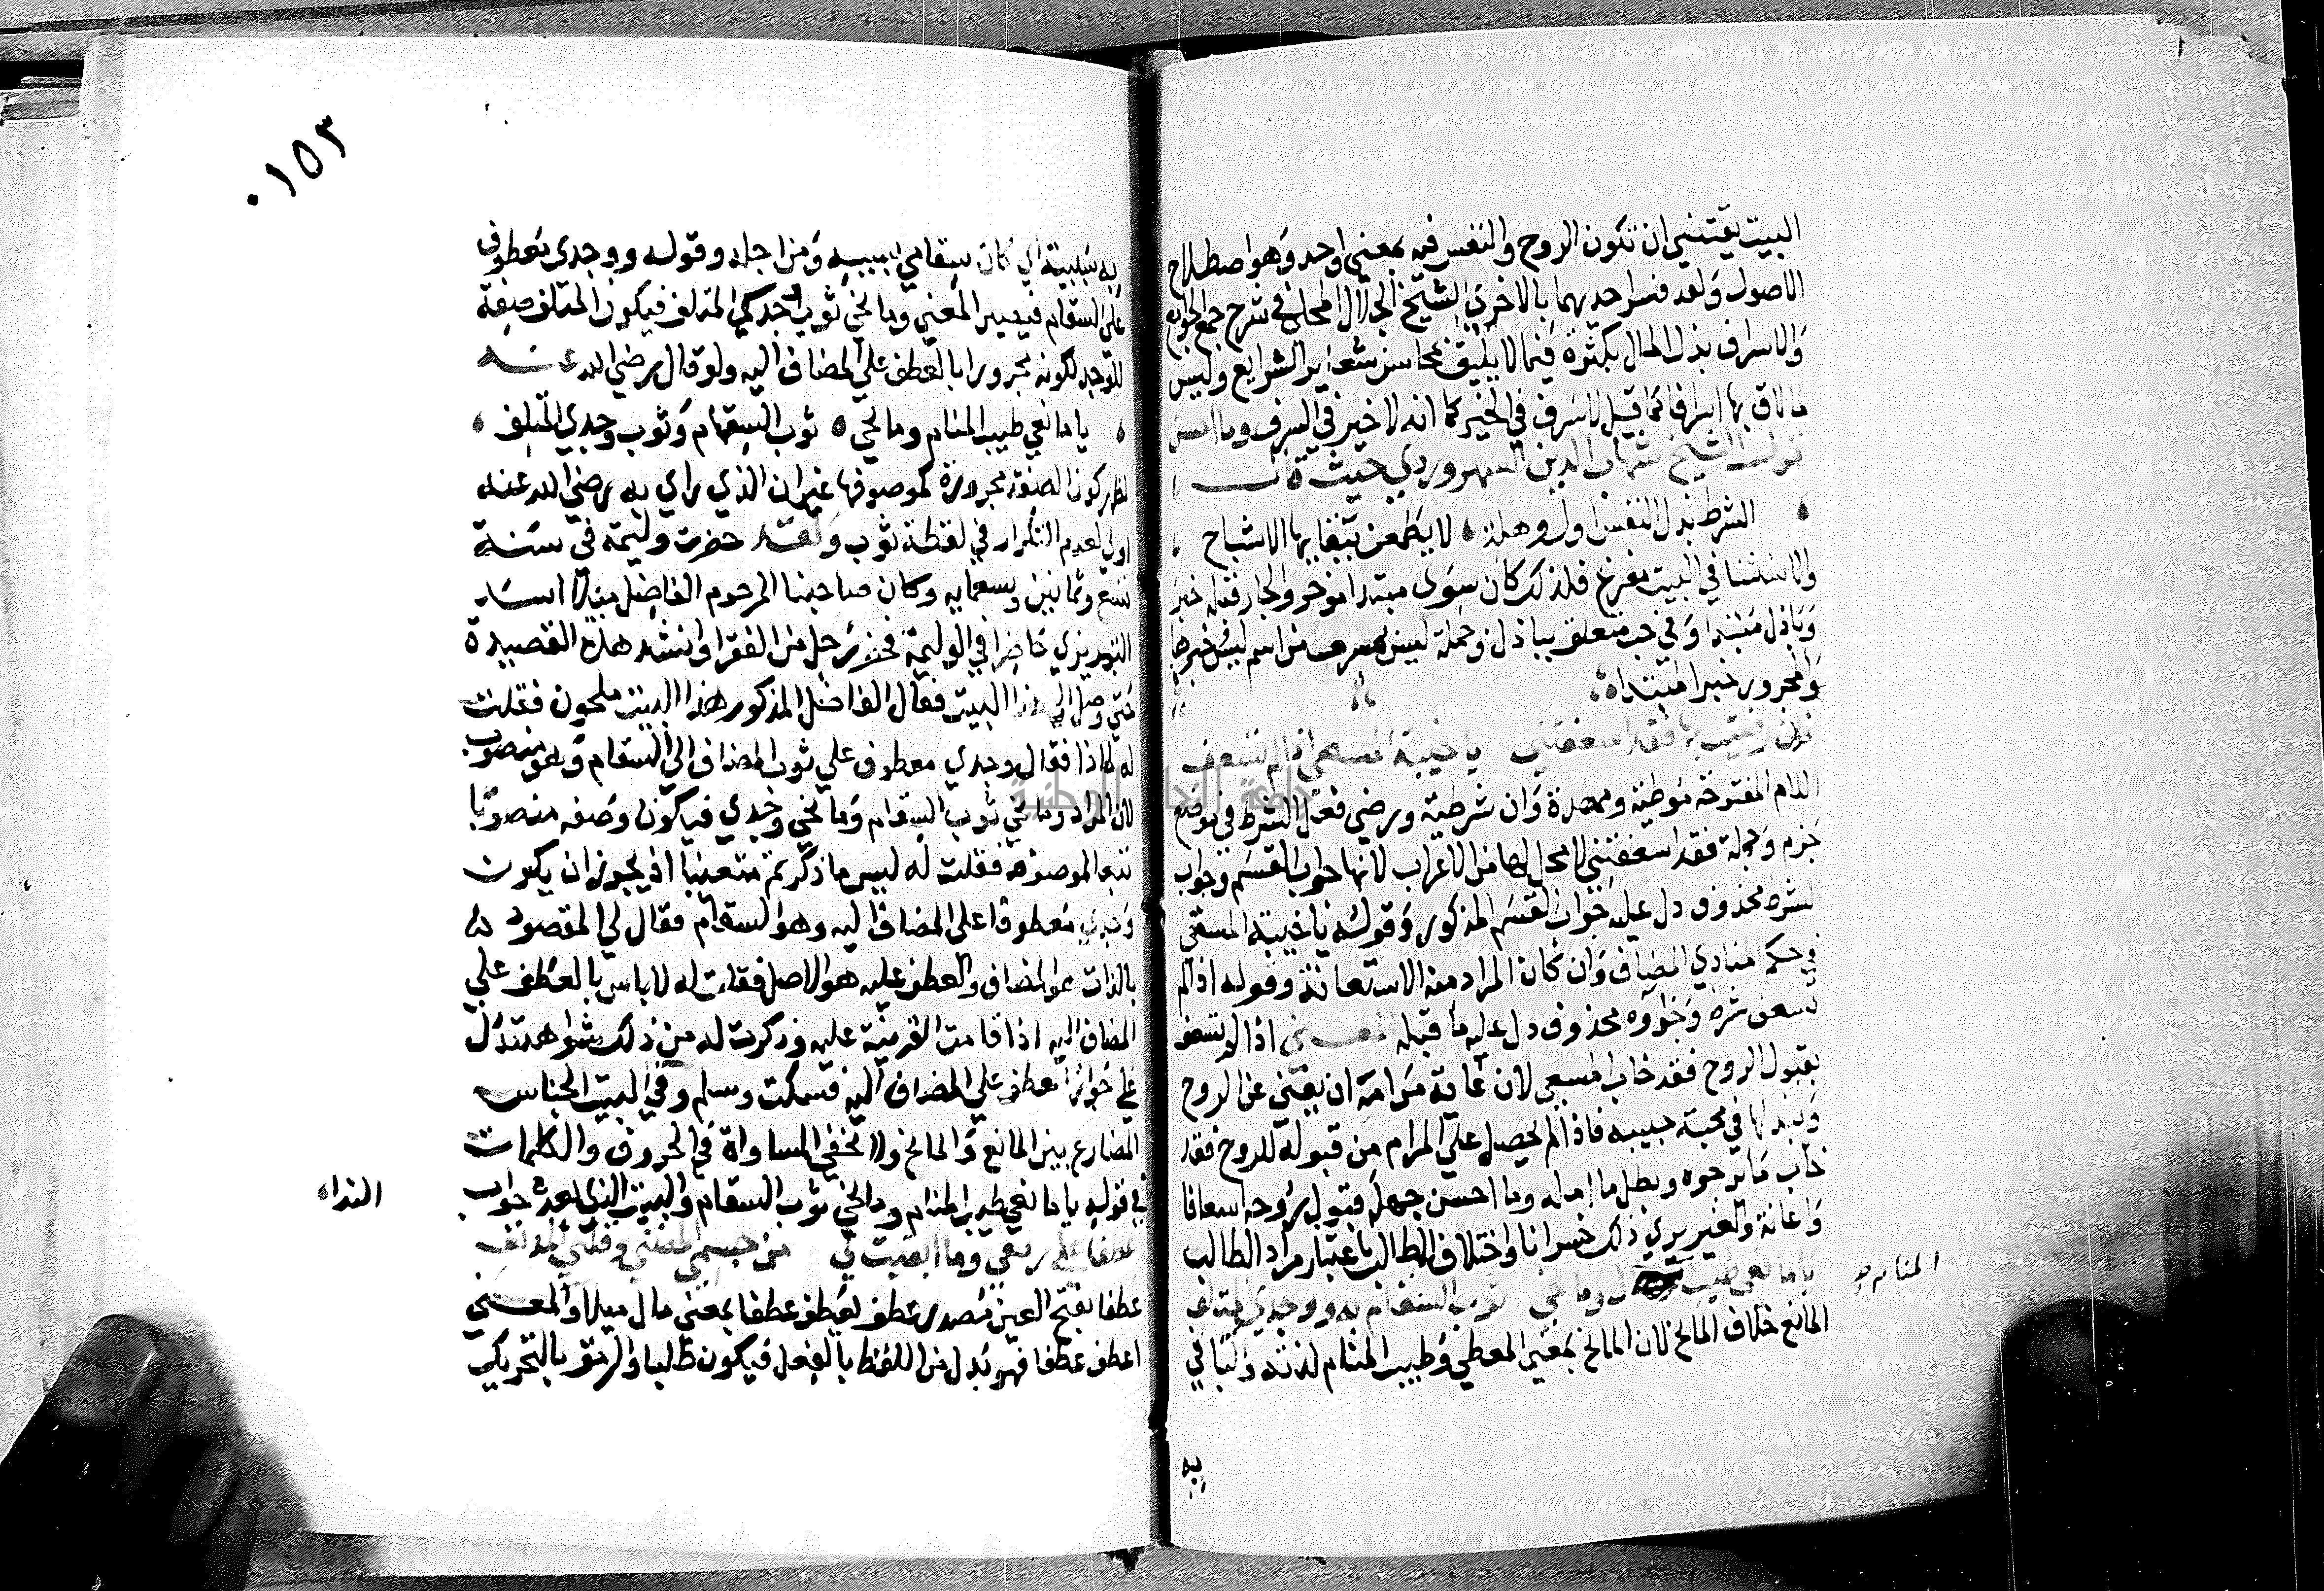 البيت يقتضي ان تكون الروح والنفس فيه بمعني واحد وهو اصطلاح
الاصول ولقد فسر احدهما بالاخري الشيخ الجلال المحلي في شرح جمع الجوامع
والاسراف بذل المال بكثرة فيما لا يليق بمحاسن شعاير الشرايع وليس
مالاق بها اسرافا كما قيل لا سرف في الخير كما انه لا خير في السرف وما احسن
قول الشيخ شهاب الدين السهروردي حيث قال
الشرط بذل النفس اول وهلة لا يطمعن ببقايها الاشباح
والاستثنا في البيت مفرغ فلذلك كان سوى مبتدا موخر والجار قبله خبر
وباذل مبتدا وفي حب متعلق بباذل وجملة ليس بمسرف من اسم ليس وخبرها
والمجرور خبر المبتداه
فلئن رضيت بها فقد اسعفتني يا خيبة المسعى اذا لم تسعف
اللام المفتوحة موطئة وممهدة وان شرطية ورضي فعل الشرط في موضع
جزم وجملة فقد اسعفتني لا محل لها من الاعراب لانها جواب القسم وجواب
الشرط محذوف دل عليه جواب القسم المذكور وقوله يا خيبة المسعي
في حكم المنادي المضاف وان كان المراد منه الاستعانة وقوله اذا لم
تسعف شرط وجوابه محذوف دل عليه ما قبله المعنى اذا لم تسعف
بقبول الروح فقد خاب المسعي لان غاية مرامه ان يفني عن الروح
ويبذلها في محبة حبيبه فاذا لم يحصل علي المرام من قبوله للروح فقد
خاب ما يرجوه وبطل ما امله وما احسن جهله قبول روحه اسعافا
واعانة والغير يري ذلك خسرانا واختلاف المطالب باعتبار مراد الطالب
المنام صح
يا مانعي طيب وما نحي ثوب السقام به ووجدي المتلف
المانع خلاف المانح لان المانح بمعني المعطي وطيب المنام لذته والبا في
به
١٥٣
به سببية اي كان سقامي بسببه ومن اجله وقوله ووجدي معطوف
علي السقام فيصير المعني ومانحي ثوب وجدي المتلف فيكون المتلف صفة
للوجد لكونه مجرورا بالعطف علي المضاف اليه ولو قال رضي الله عنه
يا مانعي طيب المنام ومانحي ثوب السقام وثوب وجدي المتلف
لظهر كون الصفة مجرورة كموصوفها غير ان الذي راي به رضي الله عنه
اولي لعدم التكرار في لفظة ثوب ولقد حضرت وليمة في سنة
تسع وثمانين وسبعمايه وكان صاحبنا المرحوم الفاضل منلا اسد
التبريزي حاضرا في الوليمة فحضر رجل من الفقرا وانشد هذه القصيدة
حتي وصل الي هذا البيت فقال الفاضل المذكور هذا البيت ملحون فقلت
له لماذا فقال وجدي معطوف علي ثوب المضاف الي السقام وهو منصوب
لان المراد ومانحي ثوب السقام ومانحي وجدي فيكون وصفه منصوبا
تبعا لموصوفه فقلت له ليس ما ذكرتم متعينا اذ يجوز ان يكون
وجدي معطوفا على المضاف اليه وهو السقام فقال لي المقصود
بالذات هو المضاف والعطف عليه هو الاصل فقلت له لا باس بالعطف علي
المضاف اليه اذا قامت القرينة عليه وذكرت له من ذلك شواهد تدل
علي جواز العطف علي المضاف اليه فسكت وسلم وفي البيت الجناس
المضارع بين المانع والمانح ولا تخفي المساواة في الحروف والكلمات
في قوله يا مانعي طيب المنام ومانحي ثوب السقام والبيت الذي بعده جواب
النداء
عطفا على رمقي وما ابقيت لي من جسمي المضني وقلبي المدنف
عطفا بفتح العين مصدر عطف يعطف عطفا بمعني مال ميلا والمعنى
اعطف عطفا فهو بدل من اللفظ بالفعل فيكون طلبا والرمق بالتحريك